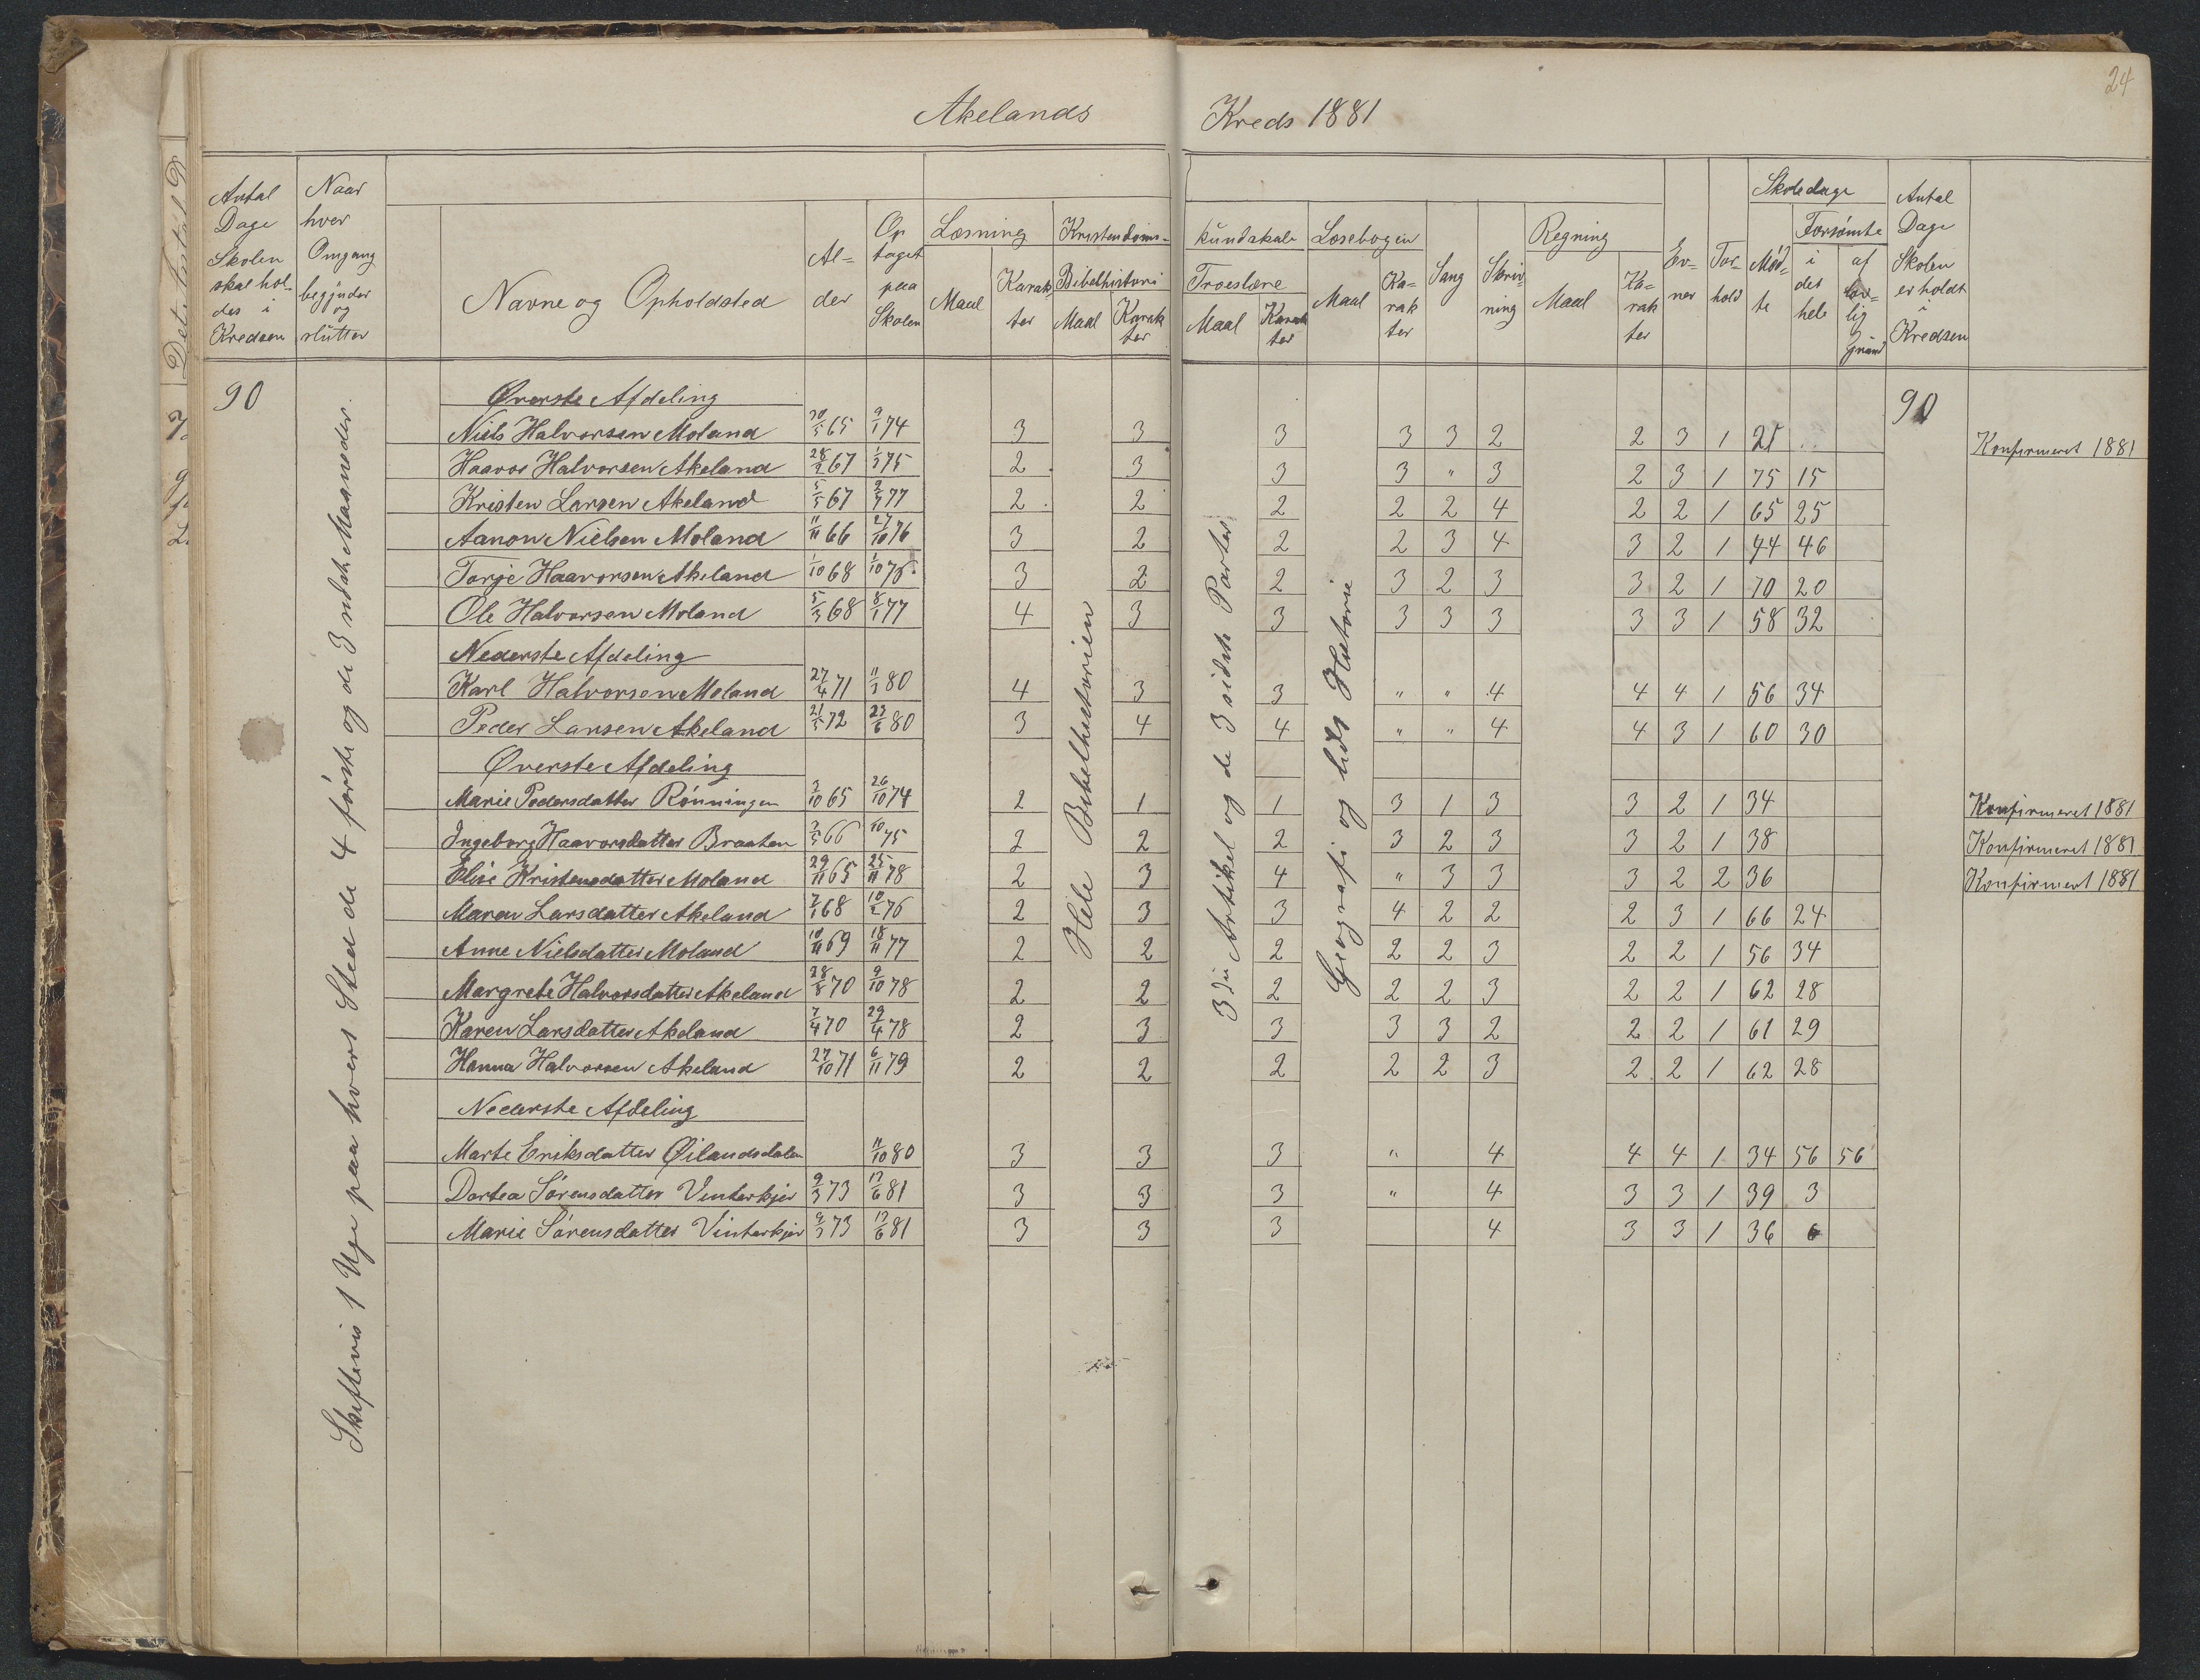 24
Akelands Kreds 1881
Antal Dage Skolen skal holdes i Kredsen
Naar hver Omgang begynder og slutter
Navne og Opholdsted
Al-der
Optaget paa Skolen
Læsning
Maal
Karakter
Kristendoms-kundskab
Bibelhistorie
Maal
Karakter
Troeslære
Maal
Karakter
Læsebogen
Maal
Karakter
Sang
Skrivning
Regning
Maal
Karakter
Evner
Forhold
Skoledage
Mødte
Forsømte
i det hele
af lovlig Grund
Antal Dage Skolen er holdt i Kredsen
90
90
Skiftevis 1 Uge paa hvert Sted de 4 første og de 3 sidste Maaneder.
Hele Bibelhistorien
3die Artikel og de 3 sidste Parter
Geografi og lidt Historie
Øverste Afdeling
Niels Halvorsen Moland 30/5 65 9/1 74 3 3 3 3 3 2 2 3 1 21 Konfirmeret 1881
Haavor Halvorsen Akeland 28/2 67 1/3 75 2 3 3 3 " 3 2 3 1 75 15
Kristen Larsen Akeland 5/5 67 2/7 77 2 2 2 2 2 4 2 2 1 65 25
Aanon Nielsen Moland 11/11 66 27/10 76 3 2 2 2 3 4 3 2 1 44 46
Torje Haavorsen Akeland 1/10 68 1/10 76 3 2 2 3 2 3 3 2 1 70 20
Ole Halvorsen Moland 5/3 68 8/1 77 4 3 3 3 3 3 3 3 1 58 32
Nederste Afdeling
Karl Halvorsen Moland 27/4 71 11/3 80 4 3 3 " " 4 4 4 1 56 34
Peder Larsen Akeland 21/5 72 23/6 80 3 4 4 " " 4 4 3 1 60 30
Øverste Afdeling
Marie Pedersdatter Rønningen 3/10 65 26/10 74 2 1 1 3 1 3 3 2 1 34 Konfirmeret 1881
Ingeborg Haavorsdatter Braaten 3/5 66 10 75 2 2 2 3 2 3 3 2 1 38 Konfirmeret 1881
Elise Kristensdatter Moland 29/11 65 25/11 78 2 3 4 " 3 3 3 2 2 36 Konfirmert 1881
Maren Larsdatter Akeland 7/1 68 10/2 76 2 3 3 4 2 2 2 3 1 66 24
Anne Nielsdatter Moland 10/11 69 18/11 77 2 2 2 2 2 3 2 2 1 56 34
Margrete Halvorsdatter Akeland 28/8 70 9/10 78 2 2 2 2 2 3 2 2 1 62 28
Karen Larsdatter Akeland 7/4 70 29/4 78 2 3 3 3 3 2 2 2 1 61 29
Hanna Halvorsen Akeland 27/10 71 6/11 79 2 2 2 2 2 3 2 2 1 62 28
Nederste Afdeling
Marte Eriksdatter Øilandsdalen 11/10 80 3 3 3 " 4 4 4 1 34 56 56
Dortea Sørensdatter Vinterkjer 9/3 73 13/6 81 3 3 3 " 4 3 3 1 39 3
Marie Sørensdatter Vinterkjer 9/3 73 13/6 81 3 3 3 4 3 3 1 36 6